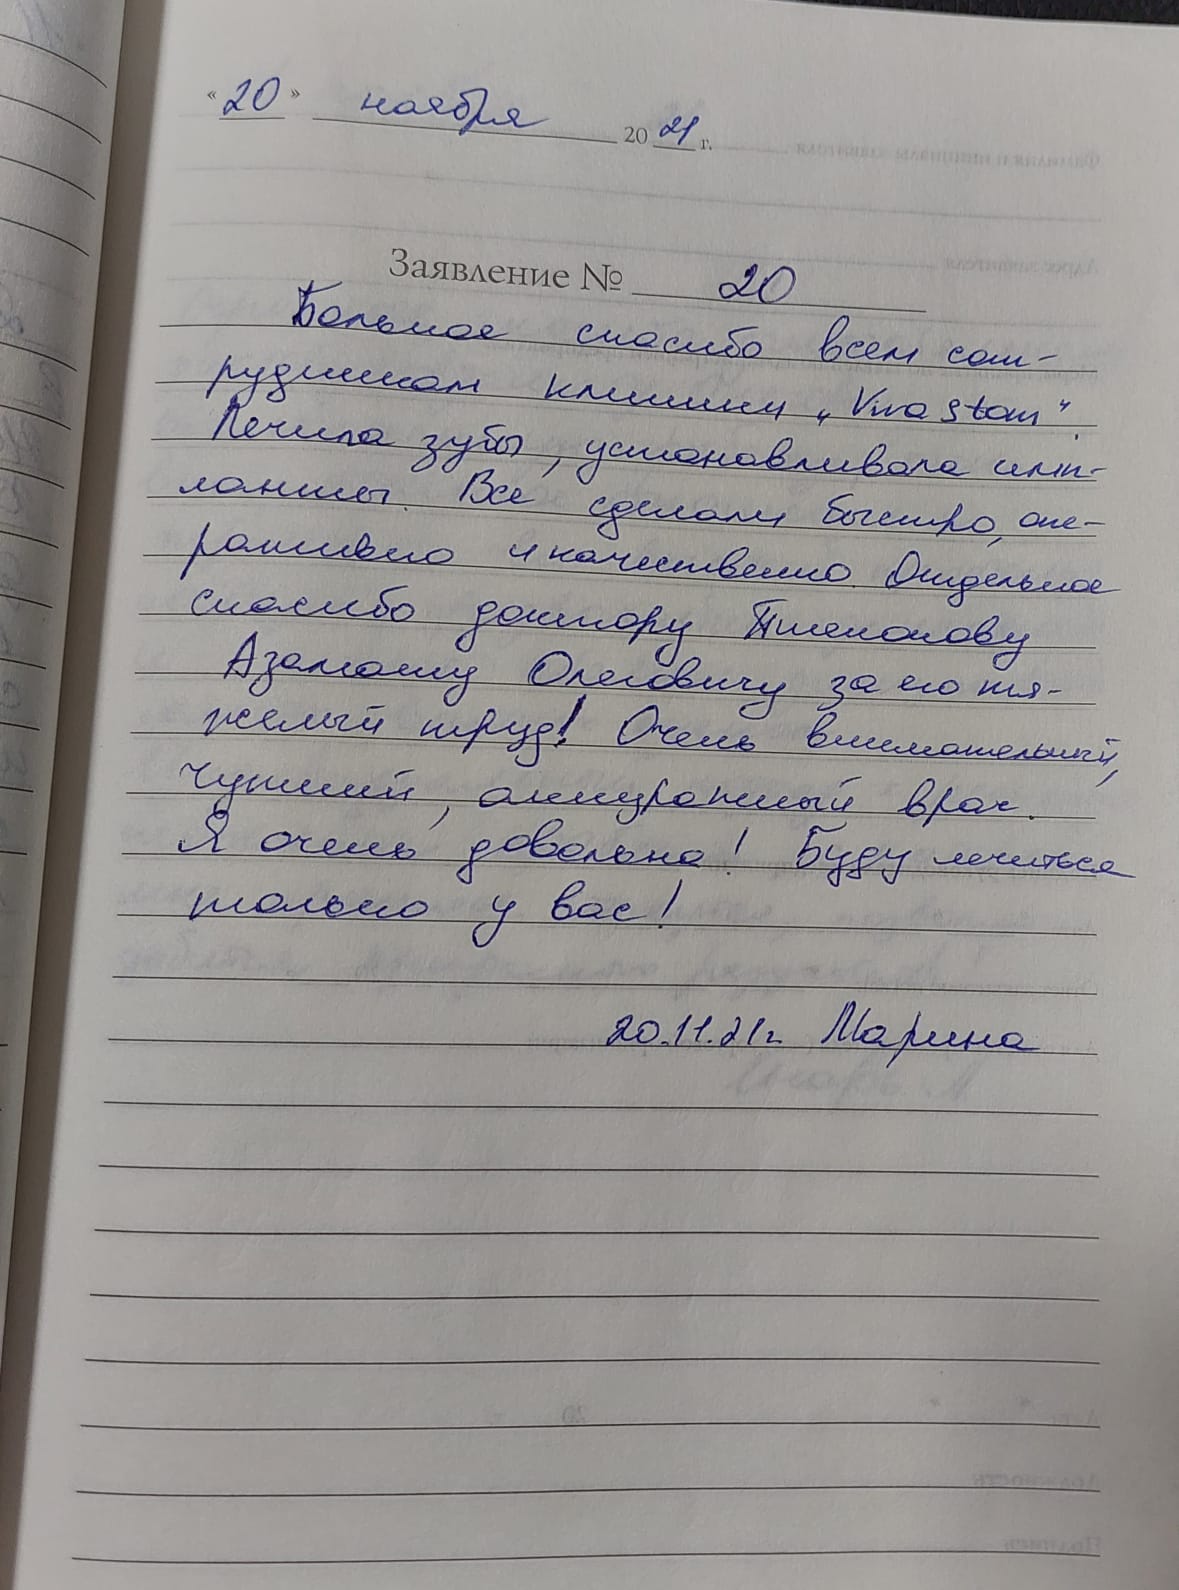 «20» ноября 2021 г.
Заявление № 20
Большое спасибо всем сот-
рудникам клиники „Viva Stom“.
Лечила зубы, устанавливала имп-
ланты. Все сделали быстро, опе-
ративно и качественно. Отдельное
спасибо доктору
Азамату Олеговичу за его тя-
желый труд! Очень внимательный,
чуткий, аккуратный врач.
Я очень довольна! Буду лечиться
только у вас!
20.11.21г. Марина